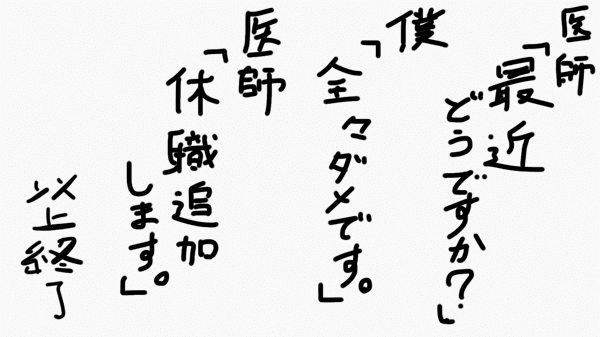 医師
「最近
どうですか?」
僕
「全々ダメです。」
医師
「休職追加
します。」
以上終了